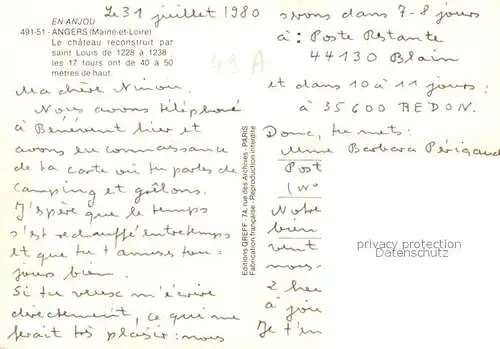 Le 31 juillet 1980
EN ANJOU
491-51 - ANGERS (Maine-et-Loire)
Le château reconstruit par
saint Louis de 1228 à 1238
les 17 tours ont de 40 à 50
mètres de haut.
49 A
Ma chère Ninou,
Nous avons téléphoné
à Bénévent hier et
avons eu connaissance
de ta carte où tu parles de
camping et grêlons.
J'spère que le temps
s'est rechauffé entretemps
et que tu t'amuses tou-
jours bien.
Si tu veux m'écrire
directement, ce qui me
ferait très plaisir: nous
Editions GREFF - 74, rue des Archives - PARIS
Fabrication française - Reproduction interdite
serons dans 7-8 jours
à: Poste Restante
44130 Blain
et dans 10 à 11 jours:
à 35600 REDON.
Donc, tu mets:
Mme Barbara Périgaud
Post
Notre
bien
vent
nous-
2 heu
à jou
Je t'en
privacy protection
www.delcampe.net